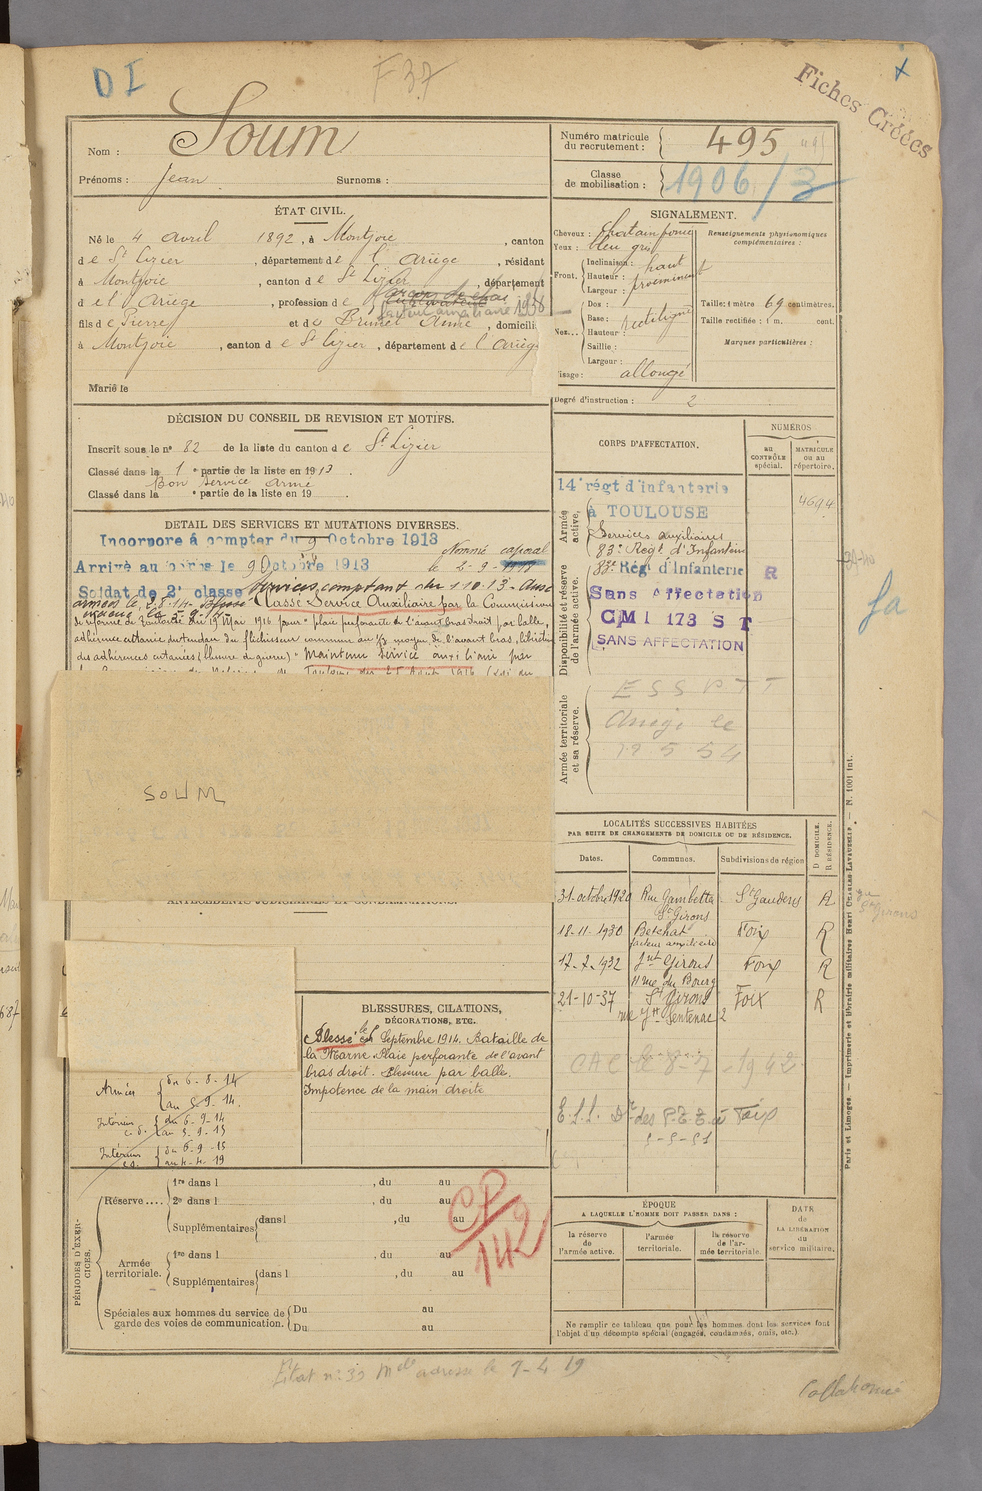 DI
F 37
Fiches Créées
Nom : Soum
Prénoms : Jean Surnoms :
Numéro matricule du recrutement : 495
Classe de mobilisation : 1906/3
ÉTAT CIVIL.
Né le 4 Avril 1892, à Montjoie, canton
de St Lizier, département de l'Ariège, résidant
à Montjoie, canton de St Lizier, département
d el Ariège, profession de
facteur auxiliaire
fils de Pierre et de Brunet Anne, domicili
à Montjoie, canton de St Lizier, département de l'Ariège
Marié le
SIGNALEMENT.
Cheveux : chatain foncé
Yeux : bleu gris
Front. Inclinaison : haut
Hauteur : proeminent
Largeur :
Nez. Dos :
Base : rectiligne
Hauteur :
Saillie :
Largeur :
Visage : allongé
Renseignements physionomiques complémentaires :
Taille : 1 mètre 69 centimètres.
Taille rectifiée : 1 m. cent.
Marques particulières :
Degré d'instruction : 2
DÉCISION DU CONSEIL DE REVISION ET MOTIFS.
Inscrit sous le no 82 de la liste du canton de St Lizier
Classé dans la 1e partie de la liste en 1913.
Bon service armé
Classé dans la e partie de la liste en 19
DETAIL DES SERVICES ET MUTATIONS DIVERSES.
Incorporé à compter du 9 Octobre 1913
Nommé caporal
Arrivé au corps le 9 Octobre 1913
Soldat de 2e classe services comptant du 1.10.13. Aux
armées le
Classé Service Auxiliaire par la Commission
de réforme de Toulouse du 19 Mai 1916 pour "plaie perforante de l'avant bras droit par balle,
adhérence cutanée du tendon du fléchisseur commun au 1/3 moyen de l'avant bras, libération
des adhérences cutanées (blessure de guerre)" Maintenu Service auxiliaire par
SOUM
CORPS D'AFFECTATION.
NUMÉROS
au CONTRÔLE spécial.
MATRICULE ou au répertoire.
Armée active.
14e régt d'infanterie
à TOULOUSE
4694
Services auxiliaires
83e Regt d'Infanterie
Disponibilité et réserve de l'armée active.
83e Rég d'Infanterie R
Sans Affectation
CMI 173 S T
SANS AFFECTATION
Armée territoriale et sa réserve.
ESSPTT
Ariège le
12 5 54
LOCALITÉS SUCCESSIVES HABITÉES
PAR SUITE DE CHANGEMENTS DE DOMICILE OU DE RÉSIDENCE.
Dates. Communes. Subdivisions de région D DOMICILE. R RÉSIDENCE.
31 octobre 1920 Rue Gambetta St Girons St Gaudens R
18-11-1930 Betchat facteur auxiliaire Foix R
17-2-1932 St Girons 11 rue du Bourg Foix R
21-10-37 St Girons Foix R
CAC le 8-7-1942
5-5-51
ANTÉCÉDENTS JUDICIAIRES ET CONDAMNATIONS.
BLESSURES, CITATIONS, DÉCORATIONS, ETC.
Blessé le 5 Septembre 1914. Bataille de
la Marne. Plaie perforante de l'avant
bras droit. Blessure par balle.
Impotence de la main droite
Armées du 6-8-14
au 5-9-14.
Intérieur du 6-9-14
au 5-9-15
Intérieur du 6-9-15
au 4-4-19
PÉRIODES D'EXERCICES.
Réserve.... 1re dans l , du au
2e dans l , du au
Supplémentaires dans l , du au
Armée territoriale. 1re dans l , du au
Supplémentaires dans l , du au
Spéciales aux hommes du service de garde des voies de communication. Du au
Du au
CP/142
ÉPOQUE
A LAQUELLE L'HOMME DOIT PASSER DANS :
la réserve de l'armée active.
l'armée territoriale.
la réserve de l'armée territoriale.
DATE de LA LIBÉRATION du service militaire.
Ne remplir ce tableau que pour les hommes dont les services font
l'objet d'un décompte spécial (engagés, condamnés, omis, etc.)
Paris et Limoges. — Imprimerie et librairie militaires Henri CHARLES-LAVAUZELLE. — N. 1001 int.
Collationné